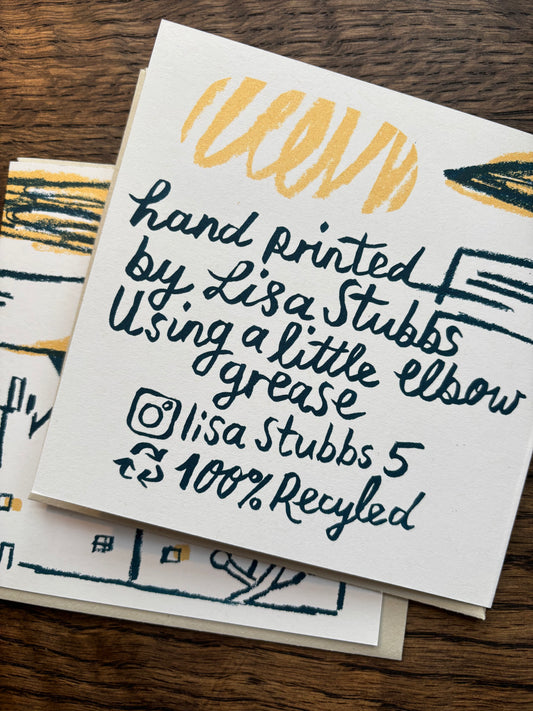 hand printed
by Lisa Stubbs
Using a little elbow
grease
lisa stubbs 5
100% Recyled